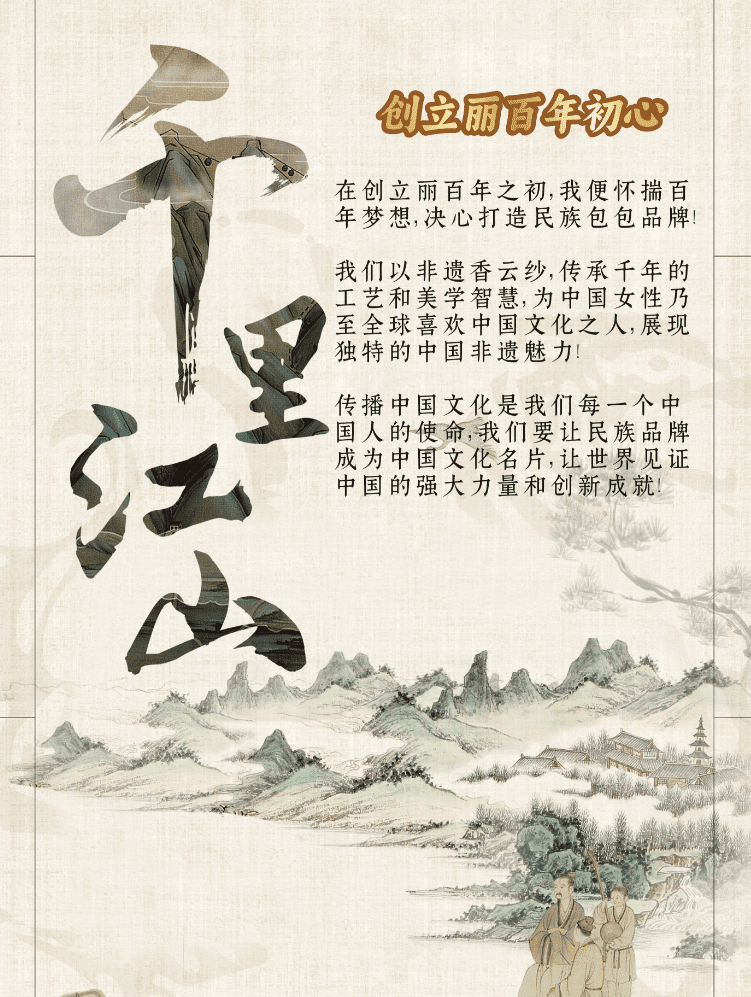 千里江山
创立丽百年初心
在创立丽百年之初,我便怀揣百
年梦想,决心打造民族包包品牌!
我们以非遗香云纱,传承千年的
工艺和美学智慧,为中国女性乃
至全球喜欢中国文化之人,展现
独特的中国非遗魅力!
传播中国文化是我们每一个中
国人的使命,我们要让民族品牌
成为中国文化名片,让世界见证
中国的强大力量和创新成就!